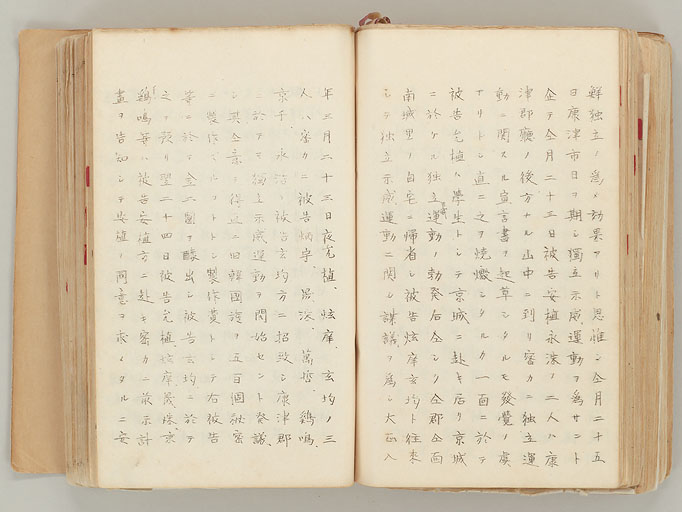 鮮独立ノ為メ効果アリト思惟シ仝月二十五
日康津市日ヲ期シ獨立示威運動ヲ為サント
企テ仝月二十三日被告安植永洙ノ二人ハ康
津郡廳ノ後方ナル山中ニ到リ密カニ独立運
動ニ関スル宣言書ヲ起草シタルモ發覺ノ虞
ナリトシ直ニ之ヲ焼燬シタルカ一面ニ於テ
被告允植ハ學生トシテ京城ニ赴キ居リ京城
ニ於ケル独立運動ノ勃発后仝シク仝郡仝面
南城里ノ自宅ニ帰省シ被告炫庠玄均ト往来
シテ独立示威運動ニ関シ謀議ヲ為シ大正八
年三月二十三日夜允植、炫庠、玄均ノ三
人ハ密カニ被告炳宇、晟深、萬哲、鷄鳴、
京千、永治、被告玄均方ニ招致シ康津郡
ニ於テモ獨立示威運動ヲ開始セント発議
シ其仝意ヲ得更ニ旧韓國旗ヲ五百個秘密
ニ製作スルコトトシ製作費トシテ右被告
等ニ於テ金二圓ヲ醵出シ被告玄均ニ於テ
之ヲ預リ翌二十四日被告允植炫庠晟深京
鷄鳴等ハ被告安植方ニ赴キ密カニ前示計
畫ヲ告知シテ安植ノ同意ヲ求メタルニ安